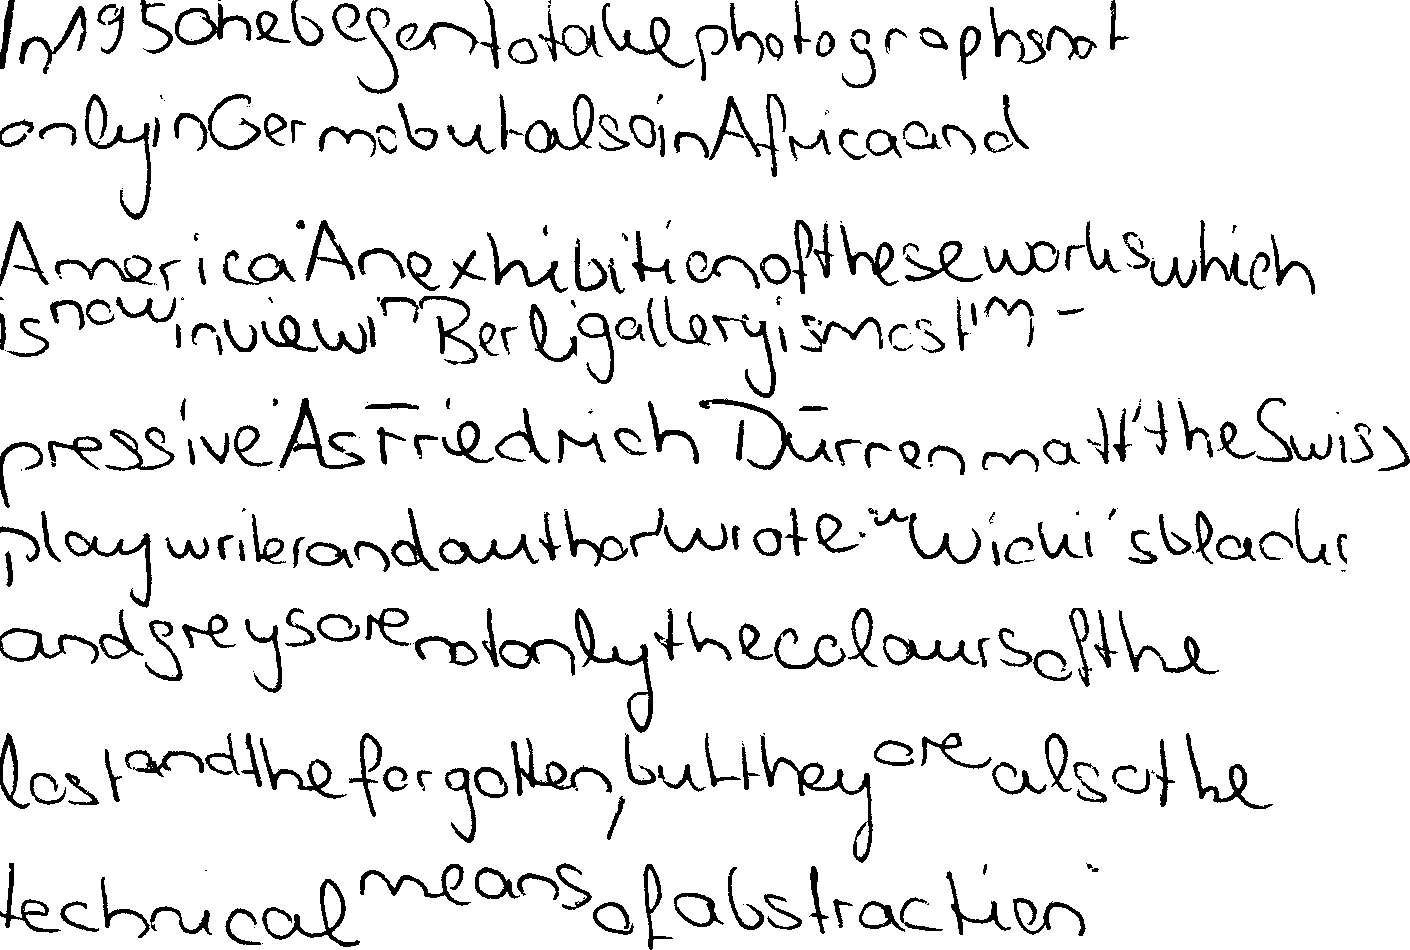 In 1950 he began to take photographs not
only in Germa but also in Africa and
America. An exhibition of these works which
is now in view in Berli gallery is most im-
pressive. As Friedrich Dürrenmatt, the Swiss
playwriter and author wrote: "Wicki's blacks
and greys are not only the colours of the
lost and the forgotten, but they are also the
technical means of abstraction"